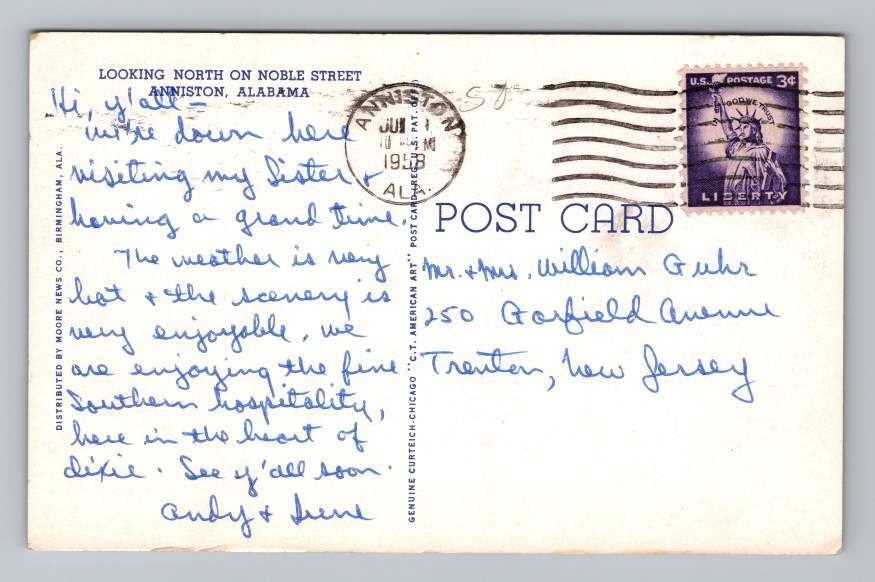 LOOKING NORTH ON NOBLE STREET
ANNISTON, ALABAMA
Hi, y'all –
We're down here
visiting my Sister &
having a grand time.
The weather is very
hot & the scenery is
very enjoyable. We
are enjoying the fine
Southern hospitality,
here in the heart of
dixie. See y'all soon.
Andy & Irene
DISTRIBUTED BY MOORE NEWS CO., BIRMINGHAM, ALA.
GENUINE CURTEICH-CHICAGO "C.T. AMERICAN ART" POST CARD (REG. U.S. PAT. OFF.)
ANNISTON
1958
ALA.
U.S. POSTAGE 3¢
IN GOD WE TRUST
LIBERTY
POST CARD
Mr. & Mrs. William Guhr
250 Garfield Avenue
Trenton, New Jersey